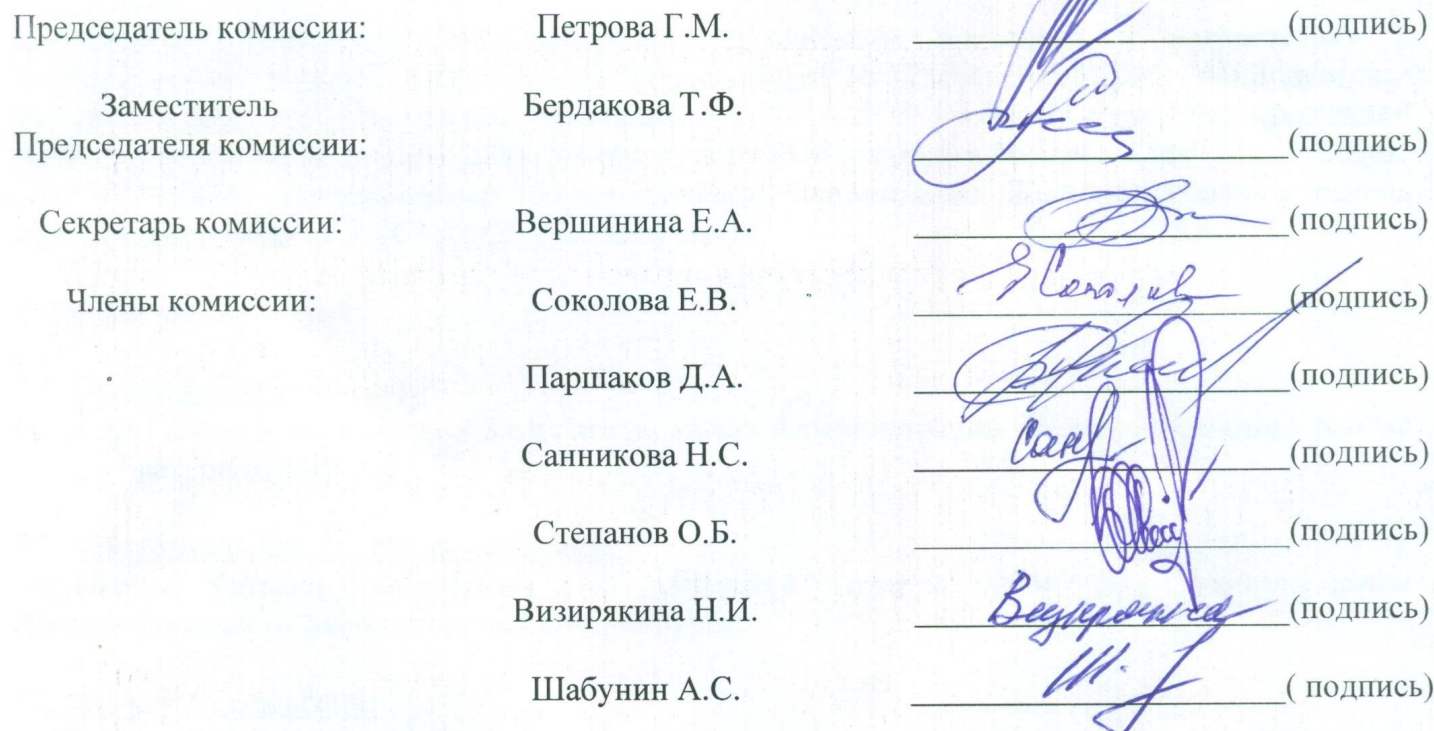 Председатель комиссии: Петрова Г.М. (подпись)
Заместитель Бердакова Т.Ф.
Председателя комиссии: (подпись)
Секретарь комиссии: Вершинина Е.А. (подпись)
Члены комиссии: Соколова Е.В. (подпись)
Паршаков Д.А. (подпись)
Санникова Н.С. (подпись)
Степанов О.Б. (подпись)
Визирякина Н.И. (подпись)
Шабунин А.С. ( подпись)